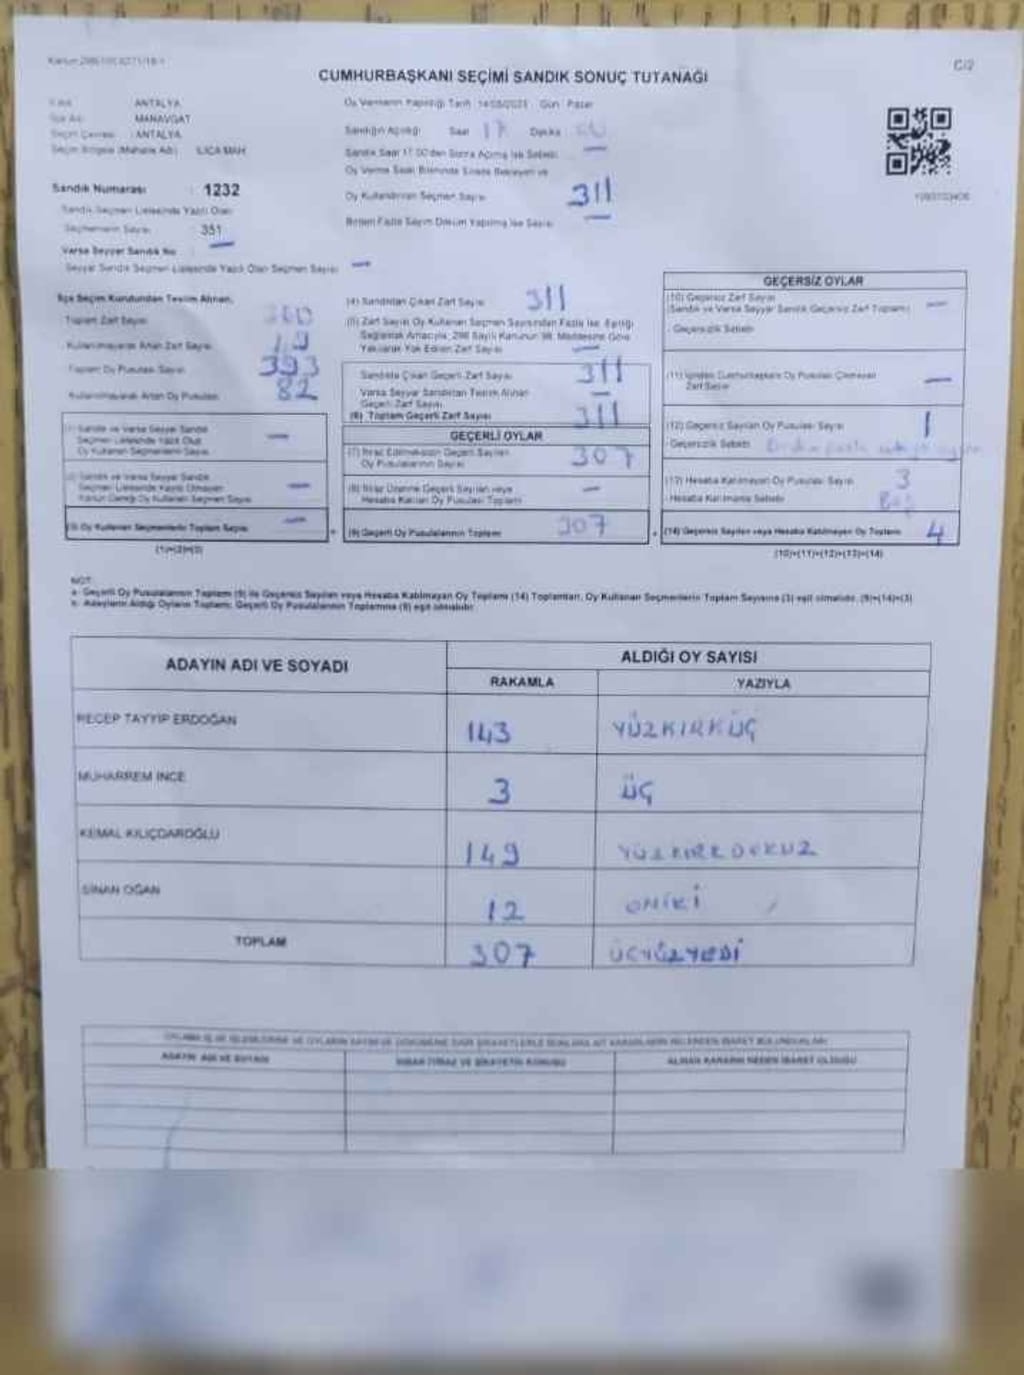 C/2
CUMHURBAŞKANI SEÇİMİ SANDIK SONUÇ TUTANAĞI
ANTALYA
MANAVGAT
ANTALYA
Seçim Bölgesi (Mahalle Adı) ILICA MAH.
Sandık Numarası : 1232
Sandık Seçmen Listesinde Yazılı Olan
Seçmenlerin Sayısı 351
Varsa Seyyar Sandık No —
Seyyar Sandık Seçmen Listesinde Yazılı Olan Seçmen Sayısı —
Oy Vermenin Yapıldığı Tarih 14/05/2023 Gün Pazar
Sandığın Açıldığı Saat 17 Dakika
Sandık Saat 17.00'den Sonra Açılmış İse Sebebi —
Oy Kullandırılan Seçmen Sayısı 311
Birden Fazla Sayım Döküm Yapılmış İse Sayısı —
İlçe Seçim Kurulundan Teslim Alınan,
Toplam Zarf Sayısı 360
Kullanılmayarak Artan Zarf Sayısı 49
Toplam Oy Pusulası Sayısı 393
Kullanılmayarak Artan Oy Pusulası 82
(1) Sandık ve Varsa Seyyar Sandık
Seçmen Listesinde Yazılı Olup
Oy Kullanan Seçmenlerin Sayısı —
(2) Sandık ve Varsa Seyyar Sandık
Seçmen Listesinde Kayıtlı Olmayan
Kanun Gereği Oy Kullanan Seçmen Sayısı —
(3) Oy Kullanan Seçmenlerin Toplam Sayısı —
(1)+(2)=(3)
(4) Sandıktan Çıkan Zarf Sayısı 311
(5) Zarf Sayısı Oy Kullanan Seçmen Sayısından Fazla İse, Eşitliği
Sağlamak Amacıyla, 298 Sayılı Kanunun 98. Maddesine Göre
Yakılarak Yok Edilen Zarf Sayısı —
Sandıkta Çıkan Geçerli Zarf Sayısı 311
Varsa Seyyar Sandıktan Teslim Alınan
Geçerli Zarf Sayısı
(6) Toplam Geçerli Zarf Sayısı 311
GEÇERLİ OYLAR
(7) İtiraz Edilmeksizin Geçerli Sayılan
Oy Pusulalarının Sayısı 307
(8) İtiraz Üzerine Geçerli Sayılan veya
Hesaba Katılan Oy Pusulası Toplamı —
(9) Geçerli Oy Pusulalarının Toplamı 307
GEÇERSİZ OYLAR
(10) Geçersiz Zarf Sayısı
(Sandık ve Varsa Seyyar Sandık Geçersiz Zarf Toplamı) —
Geçersizlik Sebebi
(11) İçinden Cumhurbaşkanı Oy Pusulası Çıkmayan
Zarf Sayısı —
(12) Geçersiz Sayılan Oy Pusulası Sayısı 1
Geçersizlik Sebebi
(13) Hesaba Katılmayan Oy Pusulası Sayısı 3
Hesaba Katılmama Sebebi Boş
(14) Geçersiz Sayılan veya Hesaba Katılmayan Oy Toplamı 4
(10)+(11)+(12)+(13)=(14)
NOT:
a- Geçerli Oy Pusulalarının Toplamı (9) ile Geçersiz Sayılan veya Hesaba Katılmayan Oy Toplamı (14) Toplamları, Oy Kullanan Seçmenlerin Toplam Sayısına (3) eşit olmalıdır. (9)+(14)=(3)
b- Adayların Aldığı Oyların Toplamı, Geçerli Oy Pusulalarının Toplamına (9) eşit olmalıdır.
ADAYIN ADI VE SOYADI ALDIĞI OY SAYISI
RAKAMLA YAZIYLA
RECEP TAYYİP ERDOĞAN 143 YÜZKIRKÜÇ
MUHARREM İNCE 3 ÜÇ
KEMAL KILIÇDAROĞLU 149 YÜZKIRKDOKUZ
SİNAN OĞAN 12 ONİKİ
TOPLAM 307 ÜÇYÜZYEDİ
ADAYIN ADI VE SOYADI
ALINAN KARARIN NEDEN İBARET OLDUĞU